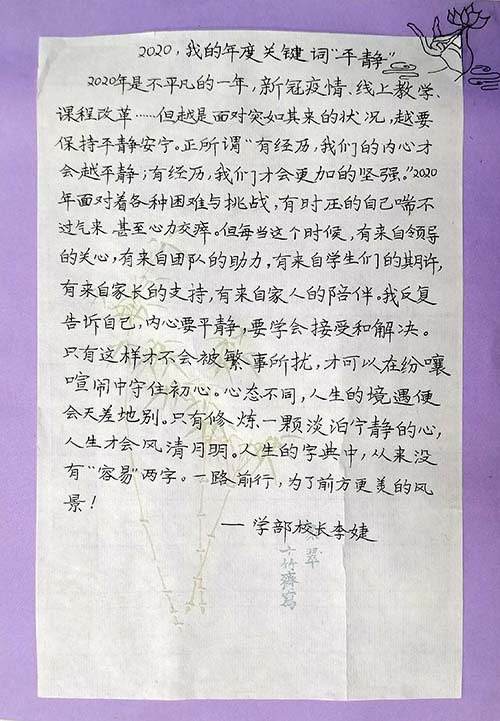 2020，我的年度关键词“平静”
2020年是不平凡的一年，新冠疫情、线上教学、
课程改革……但越是面对突如其来的状况，越要
保持平静安宁。正所谓“有经历，我们的内心才
会越平静；有经历，我们才会更加的坚强。”2020
年面对着各种困难与挑战，有时压的自己喘不
过气来，甚至心力交瘁。但每当这个时候，有来自领导
的关心，有来自团队的助力，有来自学生们的期许，
有来自家长的支持，有来自家人的陪伴。我反复
告诉自己，内心要平静，要学会接受和解决。
只有这样才不会被繁事所扰，才可以在纷嚷
喧闹中守住初心。心态不同，人生的境遇便
会天差地别。只有修炼一颗淡泊宁静的心，
人生才会风清月明。人生的字典中，从来没
有“容易”两字。一路前行，为了前方更美的风
景！
——学部校长李婕
翠
十竹齋寫